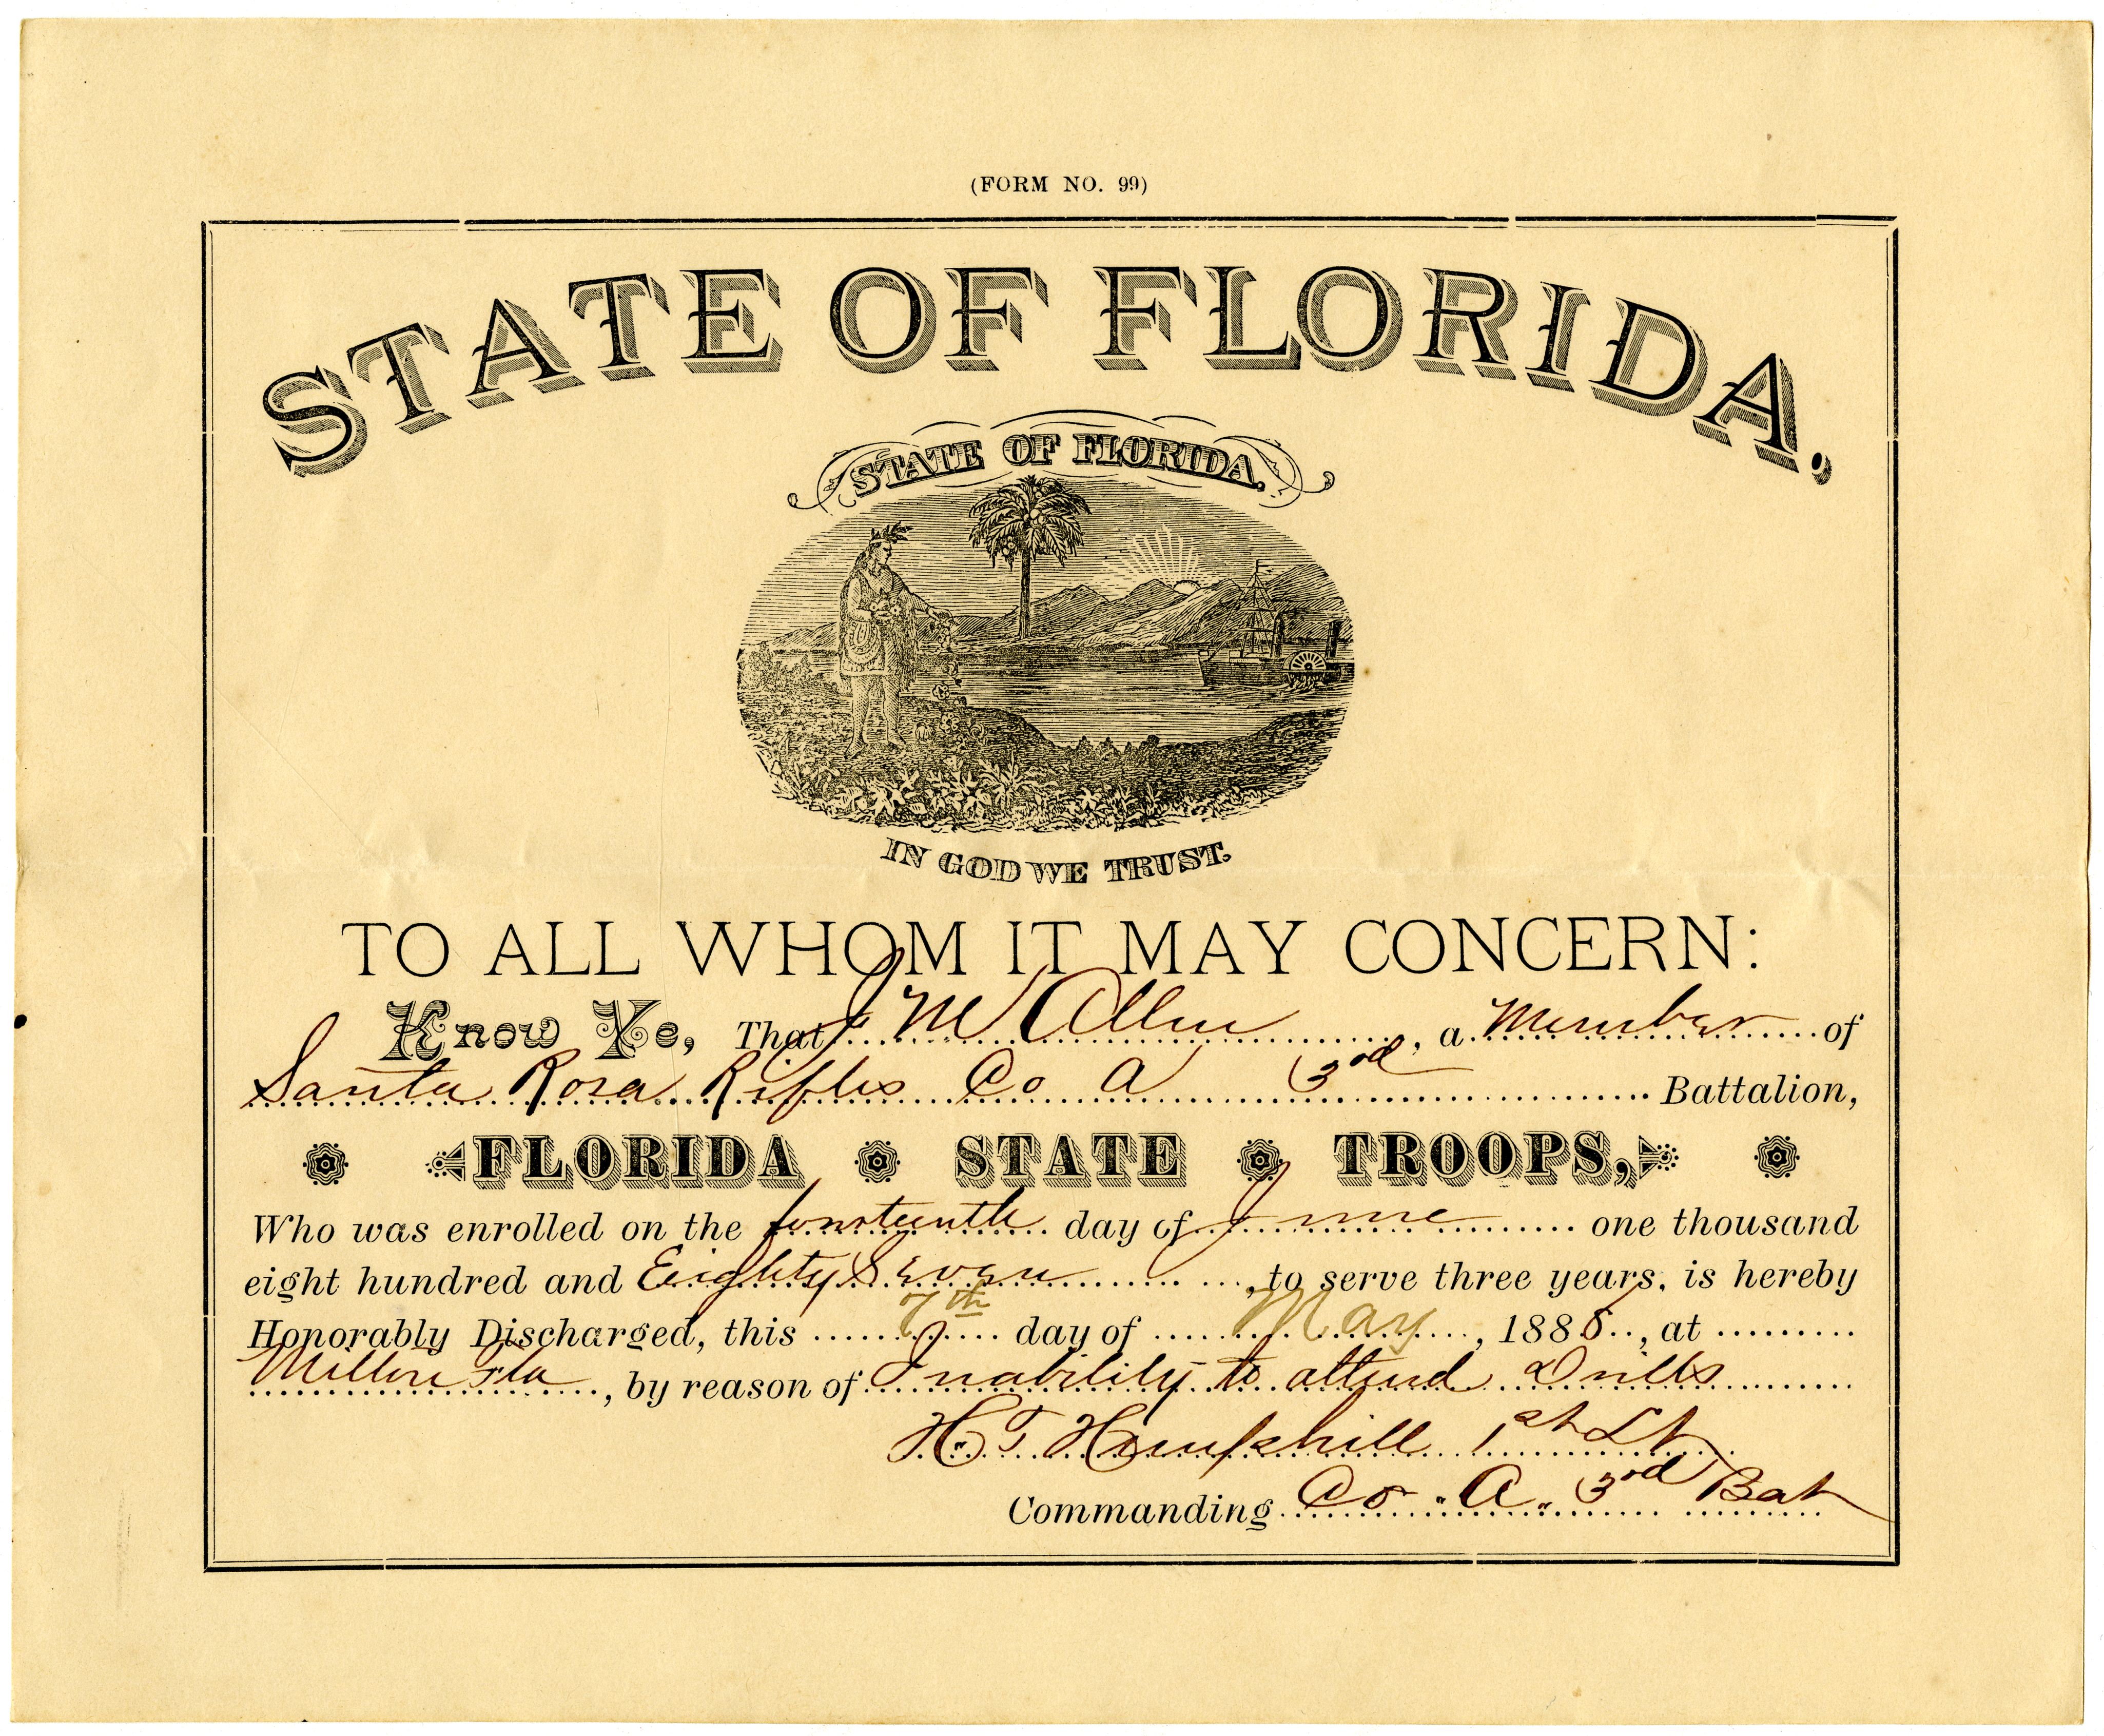 (FORM NO. 99)
STATE OF FLORIDA,
STATE OF FLORIDA.
IN GOD WE TRUST.
TO ALL WHOM IT MAY CONCERN:
Know Ye, That J M Allen, a Member of
Santa Rosa Rifles Co A 3rd Battalion,
FLORIDA STATE TROOPS,
Who was enrolled on the fourteenth day of June one thousand
eight hundred and Eighty Seven, to serve three years, is hereby
Honorably Discharged, this 7th day of May, 1888, at
Milton Fla, by reason of Inability to attend Drills
H. T. Hemphill 1st Lt
Commanding Co "A" 3rd Bat